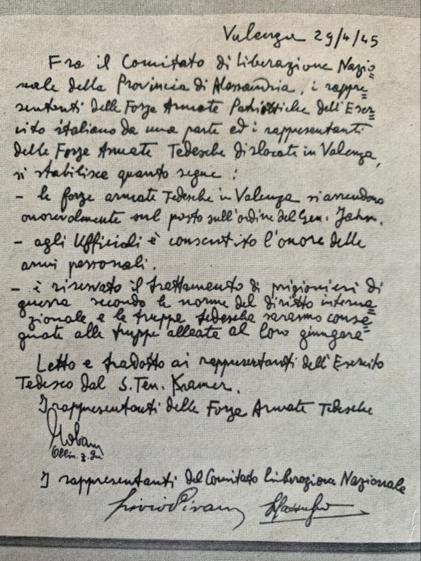 Valenza 29/4/45
Fra il Comitato di Liberazione Nazio=
nale della Provincia di Alessandria, i rappre=
sentanti delle Forze Armate Patriottiche dell'Eser=
cito italiano da una parte ed i rappresentanti
delle Forze Armate Tedesche dislocate in Valenza,
si stabilisce quanto segue:
- le forze armate Tedesche in Valenza si arrendono
onorevolmente sul posto sull'ordine del Gen. Jahn.
- agli Ufficiali è consentito l'onore delle
armi personali.
- è riservato il trattamento di prigionieri di
guerra secondo le norme del diritto interna=
zionale e le truppe tedesche saranno conse=
gnate alle truppe alleate al loro giungere
Letto e tradotto ai rappresentanti dell'Esercito
Tedesco dal S.Ten. Kramer.
I rappresentanti delle Forze Armate Tedesche
I rappresentanti del Comitato Liberazione Nazionale